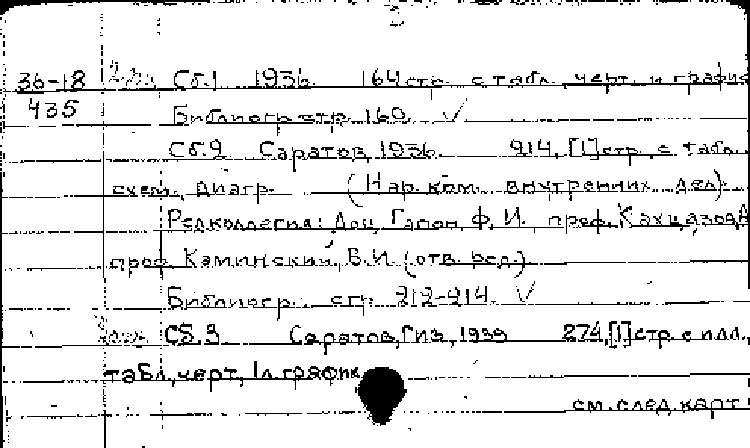 3
36-18 2 эк. Сб.1 1936. 164 стр. с табл. черт. и график
435 Библиогр. стр. 160
Сб.2 Саратов, 1936. 214, [1] стр. с табл.
схем., диагр. (Нар. ком. внутренних дел)
Редколлегия: Доц. Гапон, Ф. И., проф.
проф. Каминский, В.И. (отв. ред.)
Библиогр. стр. 212-214.
Сб. 3 Саратов, Гиз, 1939 274, [1] стр. с илл.,
табл., черт., 1 л. график
см. след. карт